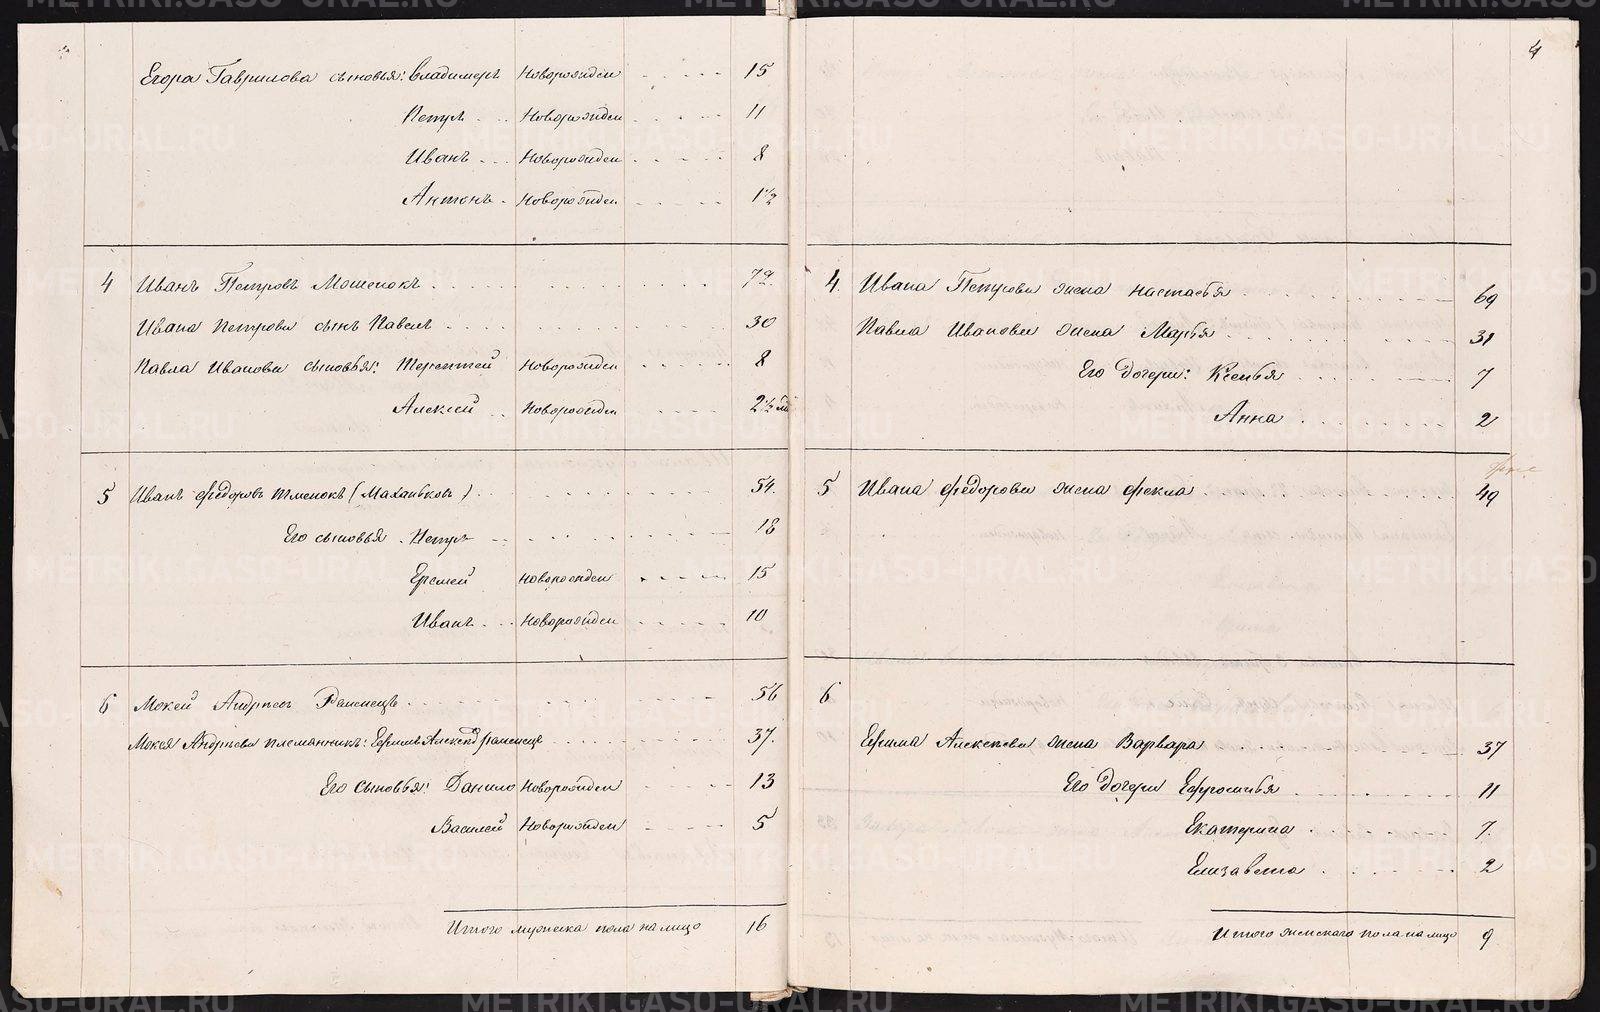 Егора Гаврилова сыновья: Владимеръ Новорожден 15
Петръ Новорожден 11
Иванъ Новорожден 8
Антонъ Новорожден 1 1/2
4 Иванъ Петровъ Мошенокъ 72.
Ивана Петрова сынъ Павелъ 30
Павла Иванова сыновья: Терентей Новорожден 8
Алексей Новорожден 2 1/2
5 Иванъ Федоровъ (Маханьковъ) 54.
Его сыновья Петръ 18
Еремей Новорожден 15
Иванъ Новорожден 10
6 Мокей Андреевъ 56
Мокея Андреева племянникъ: Ефимъ 37.
Его сыновья: Данило Новорожден 13
Василей Новорожден 5
Итого мужеска пола на лицо 16
4
4 Ивана Петрова жена Настасья 69
Павла Иванова жена Марья 31
Его дочери: Ксенья 7
Анна 2
5 Ивана Федорова жена Фекла 49
6
Ефима Алексеева жена Варвара 37
Его дочери Ефросинья 11
Екатерина 7.
Елизавета 2
Итого женскаго пола на лицо 9
METRIKI.GASO-URAL.RU